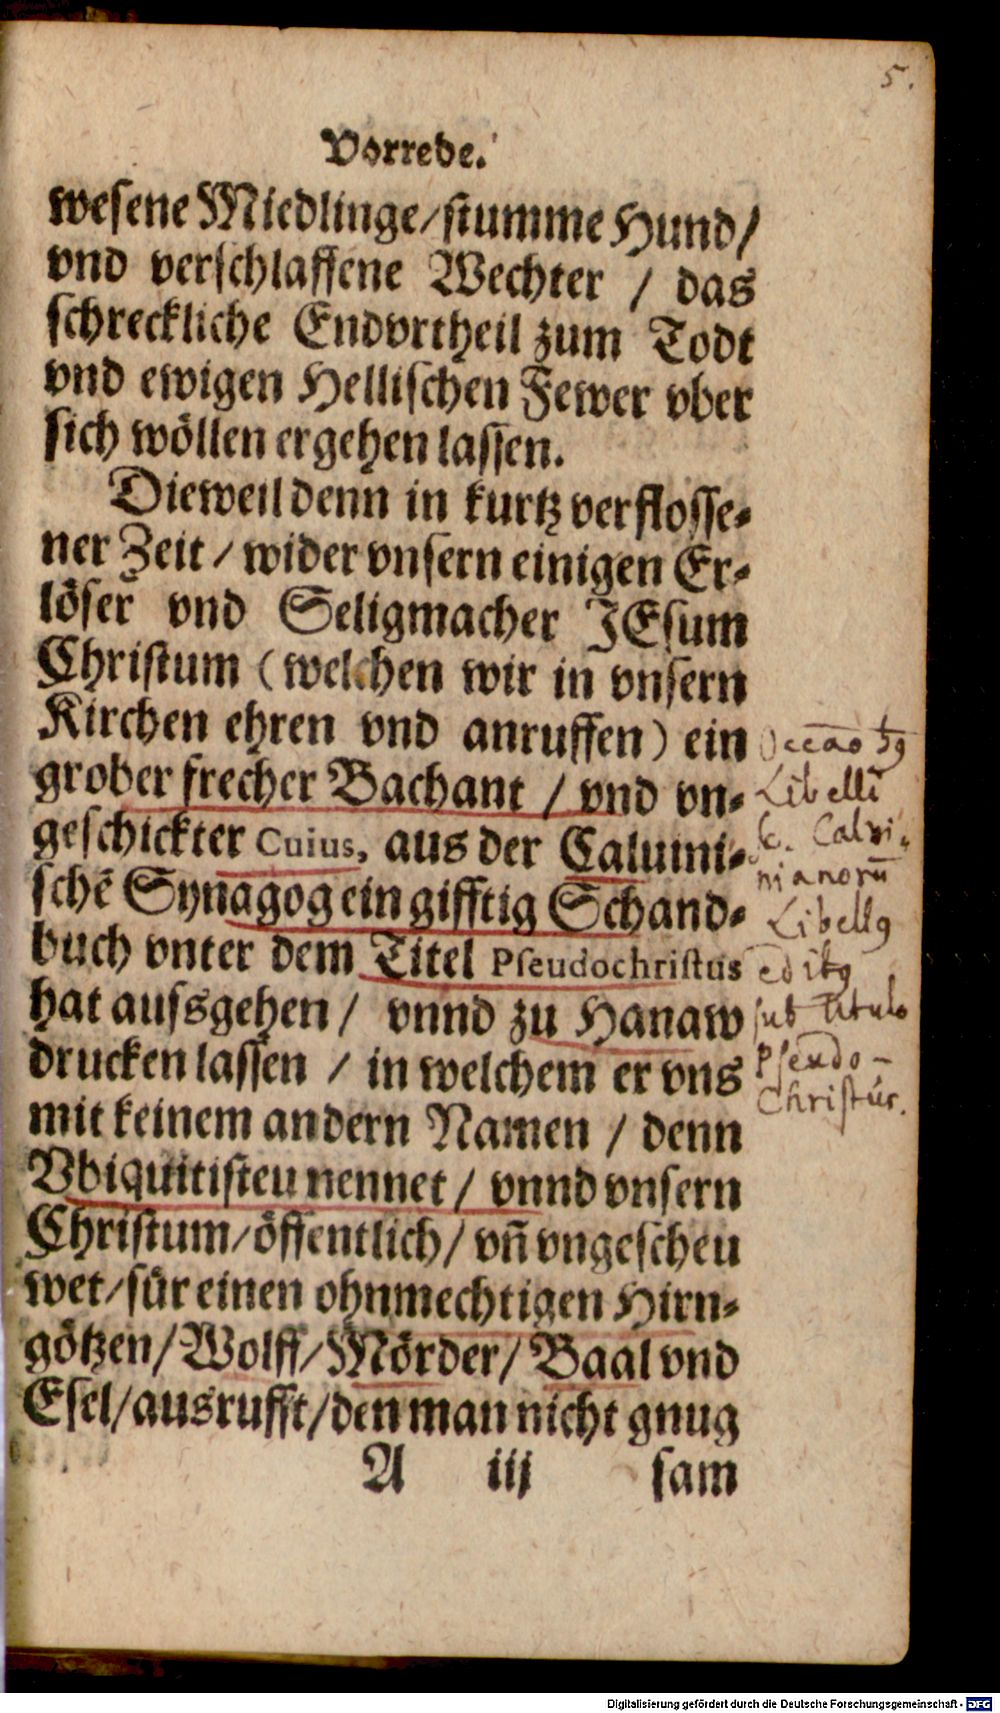 5.
Vorrede.
wesene Miedlinge/stumme Hund/
vnd verschlaffene Wechter / das
schreckliche Endvrtheil zum Todt
vnd ewigen Hellischen Fewer vber
sich wöllen ergehen lassen.
Dieweil denn in kurtz verflosse-
ner Zeit / wider vnsern einigen Er-
löser vnd Seligmacher JEsum
Christum (welchen wir in vnsern
Kirchen ehren vnd anruffen) ein
grober frecher Bachant / vnd vn-
geschickter Cuius, aus der Caluini-
schẽ Synagog ein gifftig Schand-
buch vnter dem Titel Pseudochristus
hat aussgehen / vnnd zu Hanaw
drucken lassen / in welchem er vns
mit keinem andern Namen / denn
Vbiquitisteu nennet / vnnd vnsern
Christum/öffentlich/ vñ vngescheu
wet/für einen ohnmechtigen Hirn-
götzen/Wolff/Mörder/ Baal vnd
Esel/ausrufft/den man nicht gnug
A iij sam
Libelli
sc. Calvi-
nianorũ
Libellg
editg
sub titulo
Pseudo-
Christus.
Digitalisierung gefördert durch die Deutsche Forschungsgemeinschaft - DFG